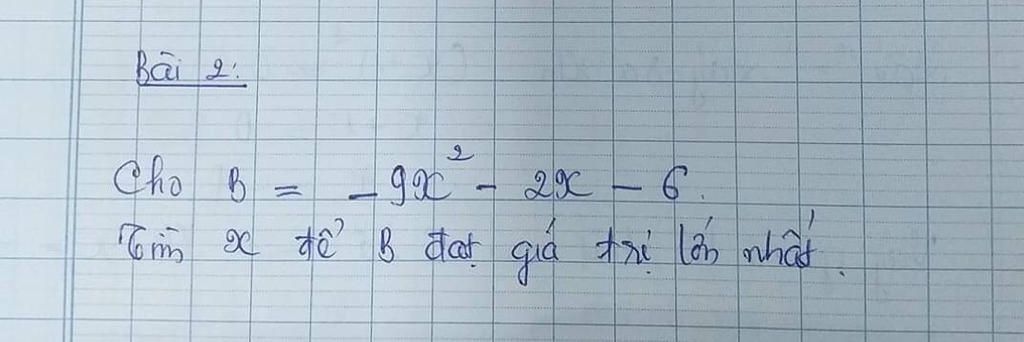 Bài 2:
Cho B = -9x² - 2x - 6.
Tìm x để B đạt giá trị lớn nhất.